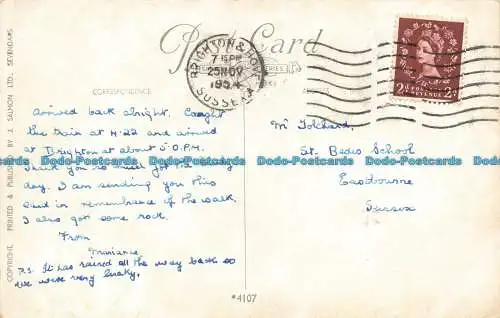 Post Card
BRIGHTON & HOVE
7 15 PM
25 NOV
1954
SUSSEX
POSTAGE REVENUE
2D 2D
CORRESPONDENCE
COPYRIGHT, PRINTED & PUBLISHED BY J. SALMON LTD., SEVENOAKS
Arrived back alright. Caught
the train at 4.22 and arrived
at Brighton at about 5.0.P.M.
Thank you so much for the lovely
day. I am sending you this
card in remembrance of the walk.
I also got some rock.
From
Marianne
P.S. It has rained all the way back so
we were very lucky.
Mr
St. Bedes School
Eastbourne
Sussex
*4107
Dodo-Postcards Dodo-Postcards Dodo-Postcards Dodo-Postcards